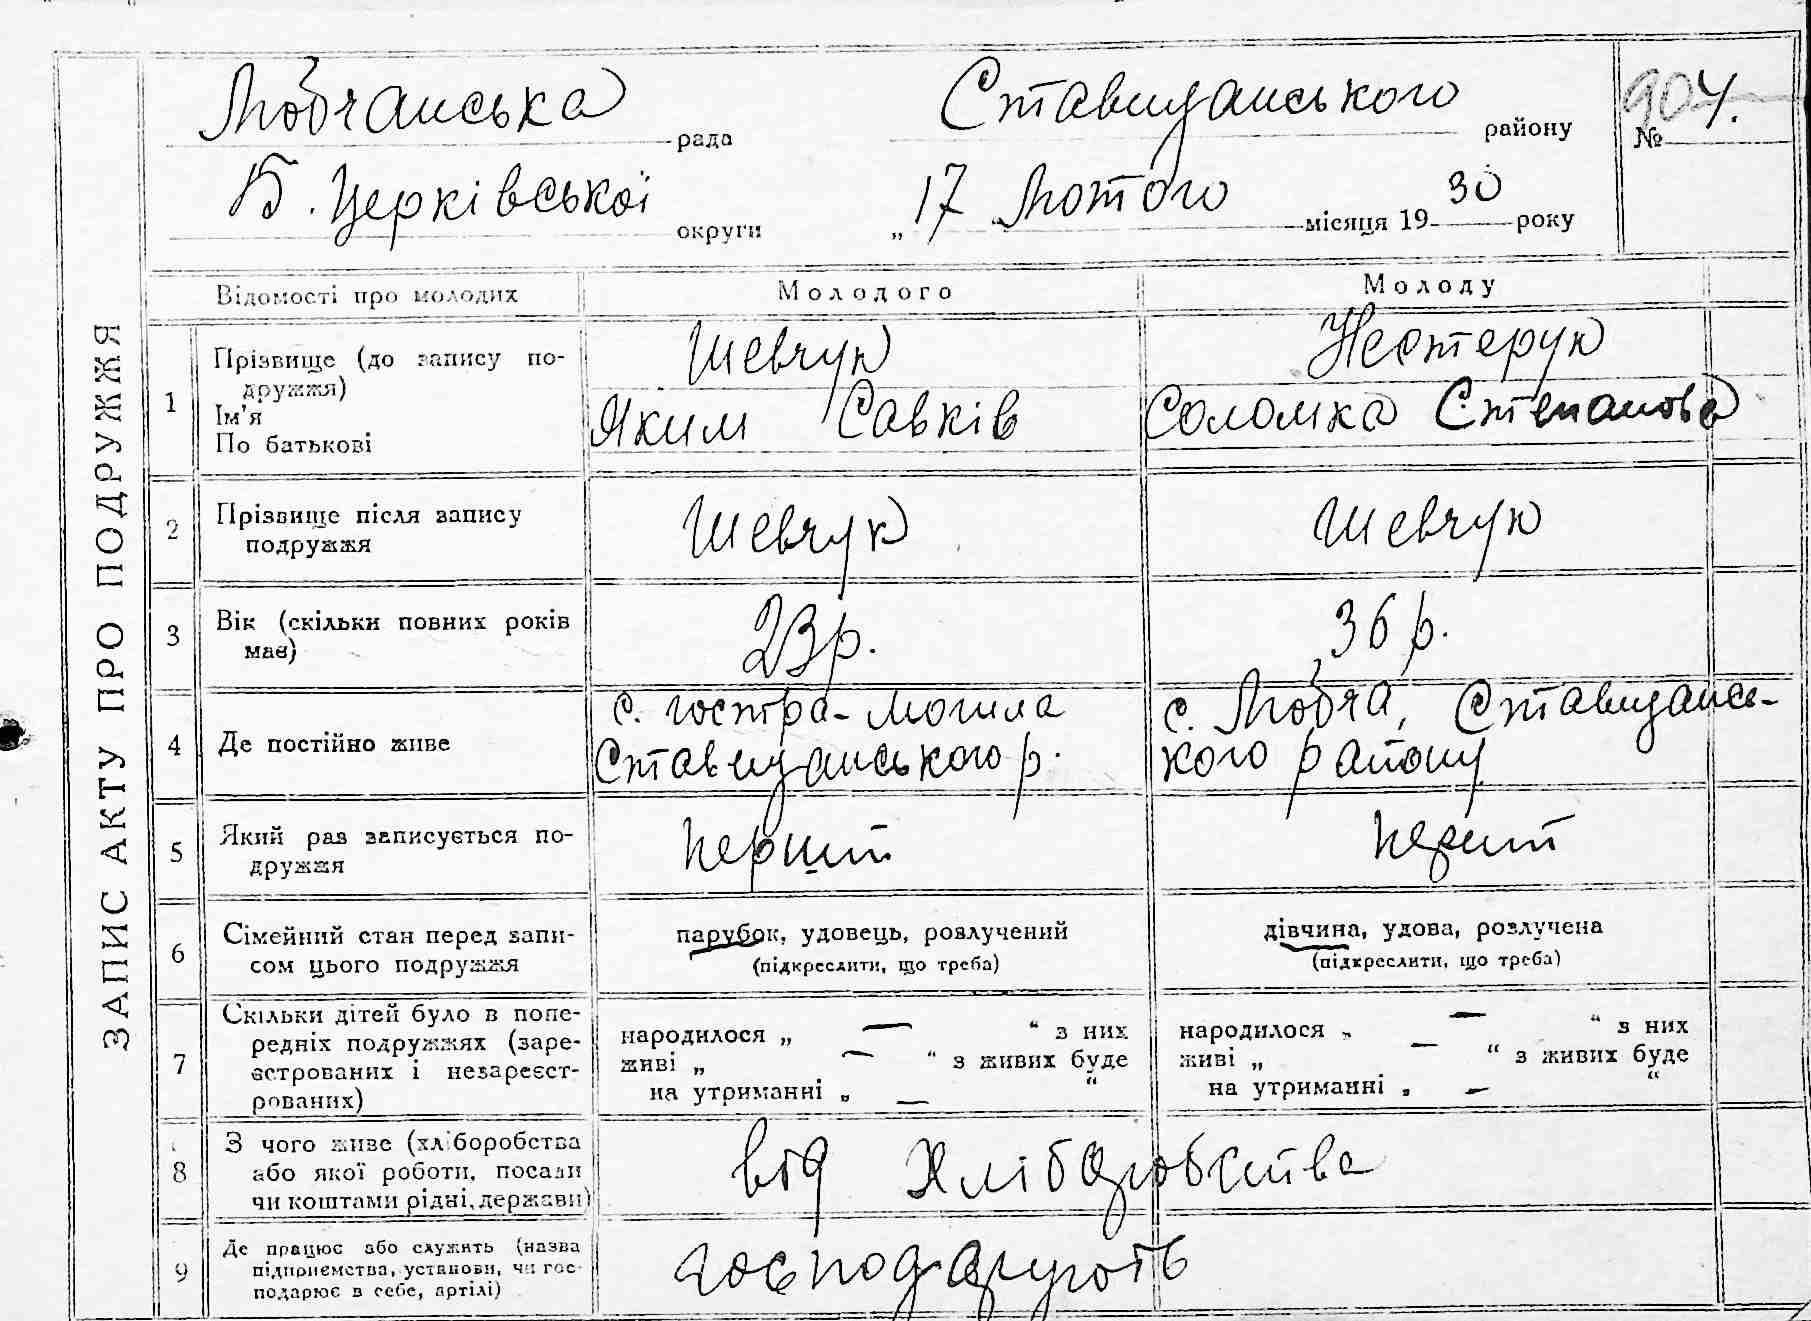 ЗАПИС АКТУ ПРО ПОДРУЖЖЯ
Любчанська рада Ставищанського району № 904.
Б. Церківської округи „17 Лютого місяця 1930 року
Відомості про молодих Молодого Молоду
1 Прізвище (до запису подружжя) Шевчук Нестерук
Ім'я
По батькові Яким Савків Соломка Степанова
2 Прізвище після запису Шевчук Шевчук
подружжя
3 Вік (скільки повних років 23 р. 36 р.
має)
4 Де постійно живе с. гостра-Могила с. Любча, Ставищансь-
Ставищанського р. кого району
5 Який раз записується по- перший перший
дружжя
6 Сімейний стан перед запи- парубок, удовець, розлучений дівчина, удова, розлучена
сом цього подружжя (підкреслити, що треба) (підкреслити, що треба)
7 Скільки дітей було в попе-
редніх подружжях (заре- народилося „ — “ з них народилося „ — “ з них
єстрованих і незареєст- живі „ — “ з живих буде живі „ — “ з живих буде
рованих) на утриманні „ — “ на утриманні „ — “
8 З чого живе (хліборобства
або якої роботи, посади від хліборобства
чи коштами рідні, держави)
9 Де працює або служить (назва
підприємства, установи, чи гос- господарують
подарює в себе, артілі)